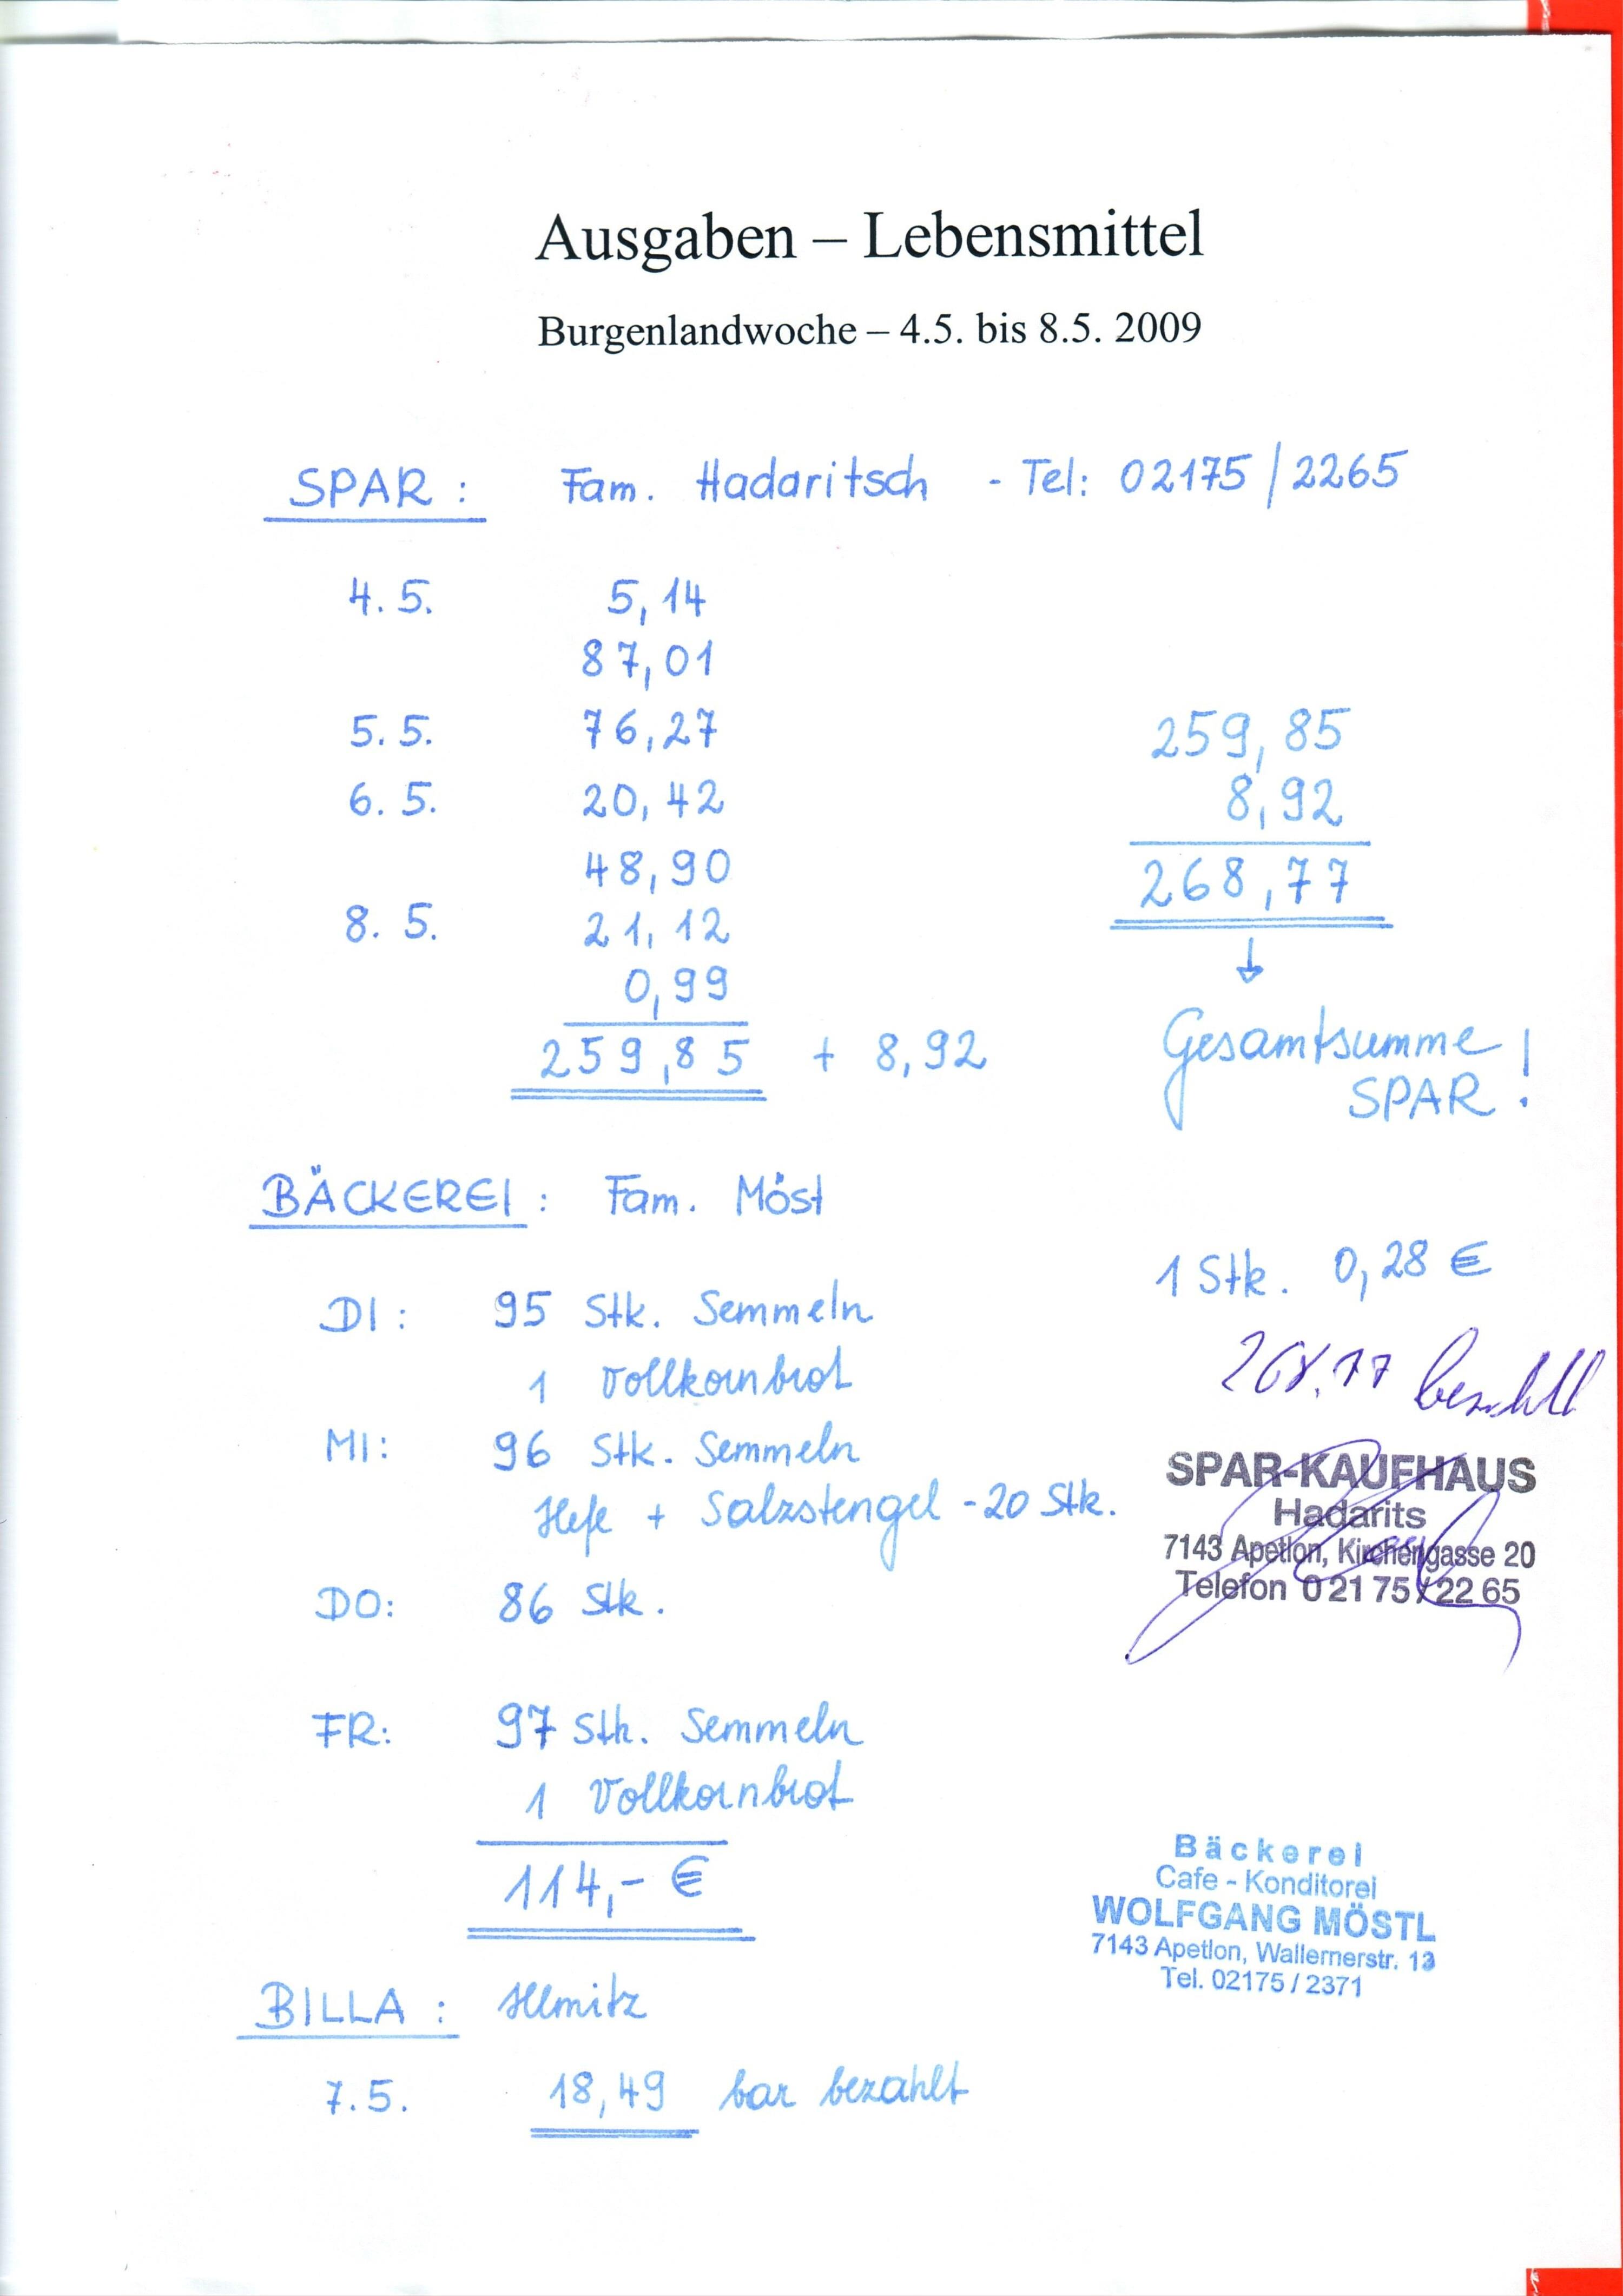 Ausgaben – Lebensmittel
Burgenlandwoche – 4.5. bis 8.5. 2009
SPAR : Fam. Hadaritsch - Tel: 02175/2265
4.5. 5,14
87,01
5.5. 76,27
6.5. 20,42
48,90
8.5. 21,12
0,99
259,85 + 8,92
259,85
8,92
268,77
↓
Gesamtsumme
SPAR !
BÄCKEREI : Fam. Möst
1 Stk. 0,28 €
DI : 95 Stk. Semmeln
1 Vollkornbrot
MI: 96 Stk. Semmeln
Hefe + Salzstengel - 20 Stk.
DO: 86 Stk.
FR: 97 Stk. Semmeln
1 Vollkornbrot
114,- €
268.77 bezahlt
SPAR-KAUFHAUS
Hadarits
7143 Apetlon, Kirchengasse 20
Telefon 0 21 75 / 22 65
Bäckerei
Cafe - Konditorei
WOLFGANG MÖSTL
7143 Apetlon, Wallernerstr. 13
Tel. 02175 / 2371
BILLA : Illmitz
7.5. 18,49 bar bezahlt